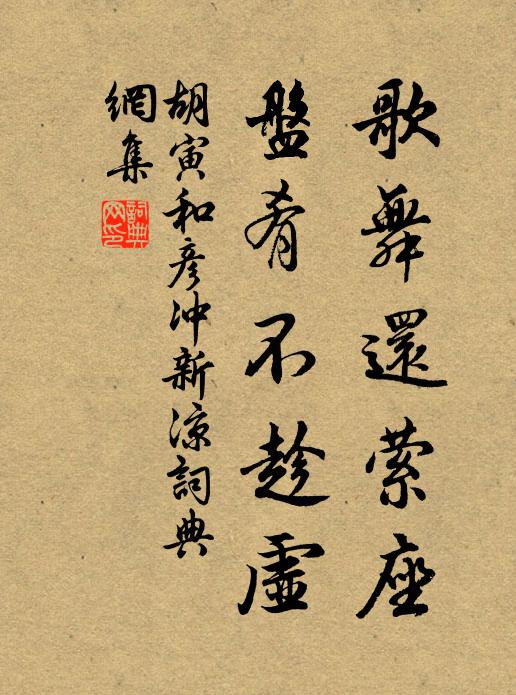 歌舞還縈座
盤肴不趁虛
胡寅和彥沖新涼詞典
網集
詞典網印